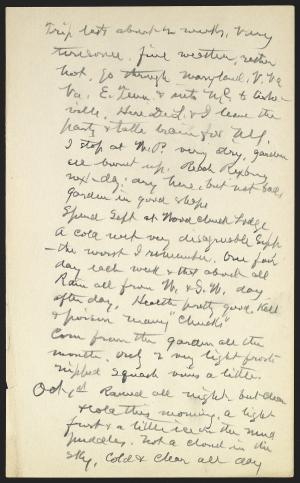 Trip lasts about 2 weeks, Very
tiresome. fine weather, rather
hot. Go through Maryland, V. Va
Va. E. Tenn. & into N.C. to Ashe-
ville. Here De L. & I leave the
party & take train for N.Y.
I stop at W.P. very dry, garden
all burnt up. Reach Roxbury
next day; dry here, but not bad;
garden in good shape.
Spend Sept at Woodchuck Lodge
A cold wet very disagreeable Sept
– the worst I remember. One fair
day each week & that about all
Rain all from N. & S.W. day
after day. Health pretty good. Kill
& poison many "chucks"
Corn from the garden all the
month. Only 2 very light frosts
nipped squash vines a little.
Oct 1st Rained all night but clear
& cold this morning, a light
frost & a little ice on the mud
puddles. Not a cloud in the
sky, Cold & clear all day